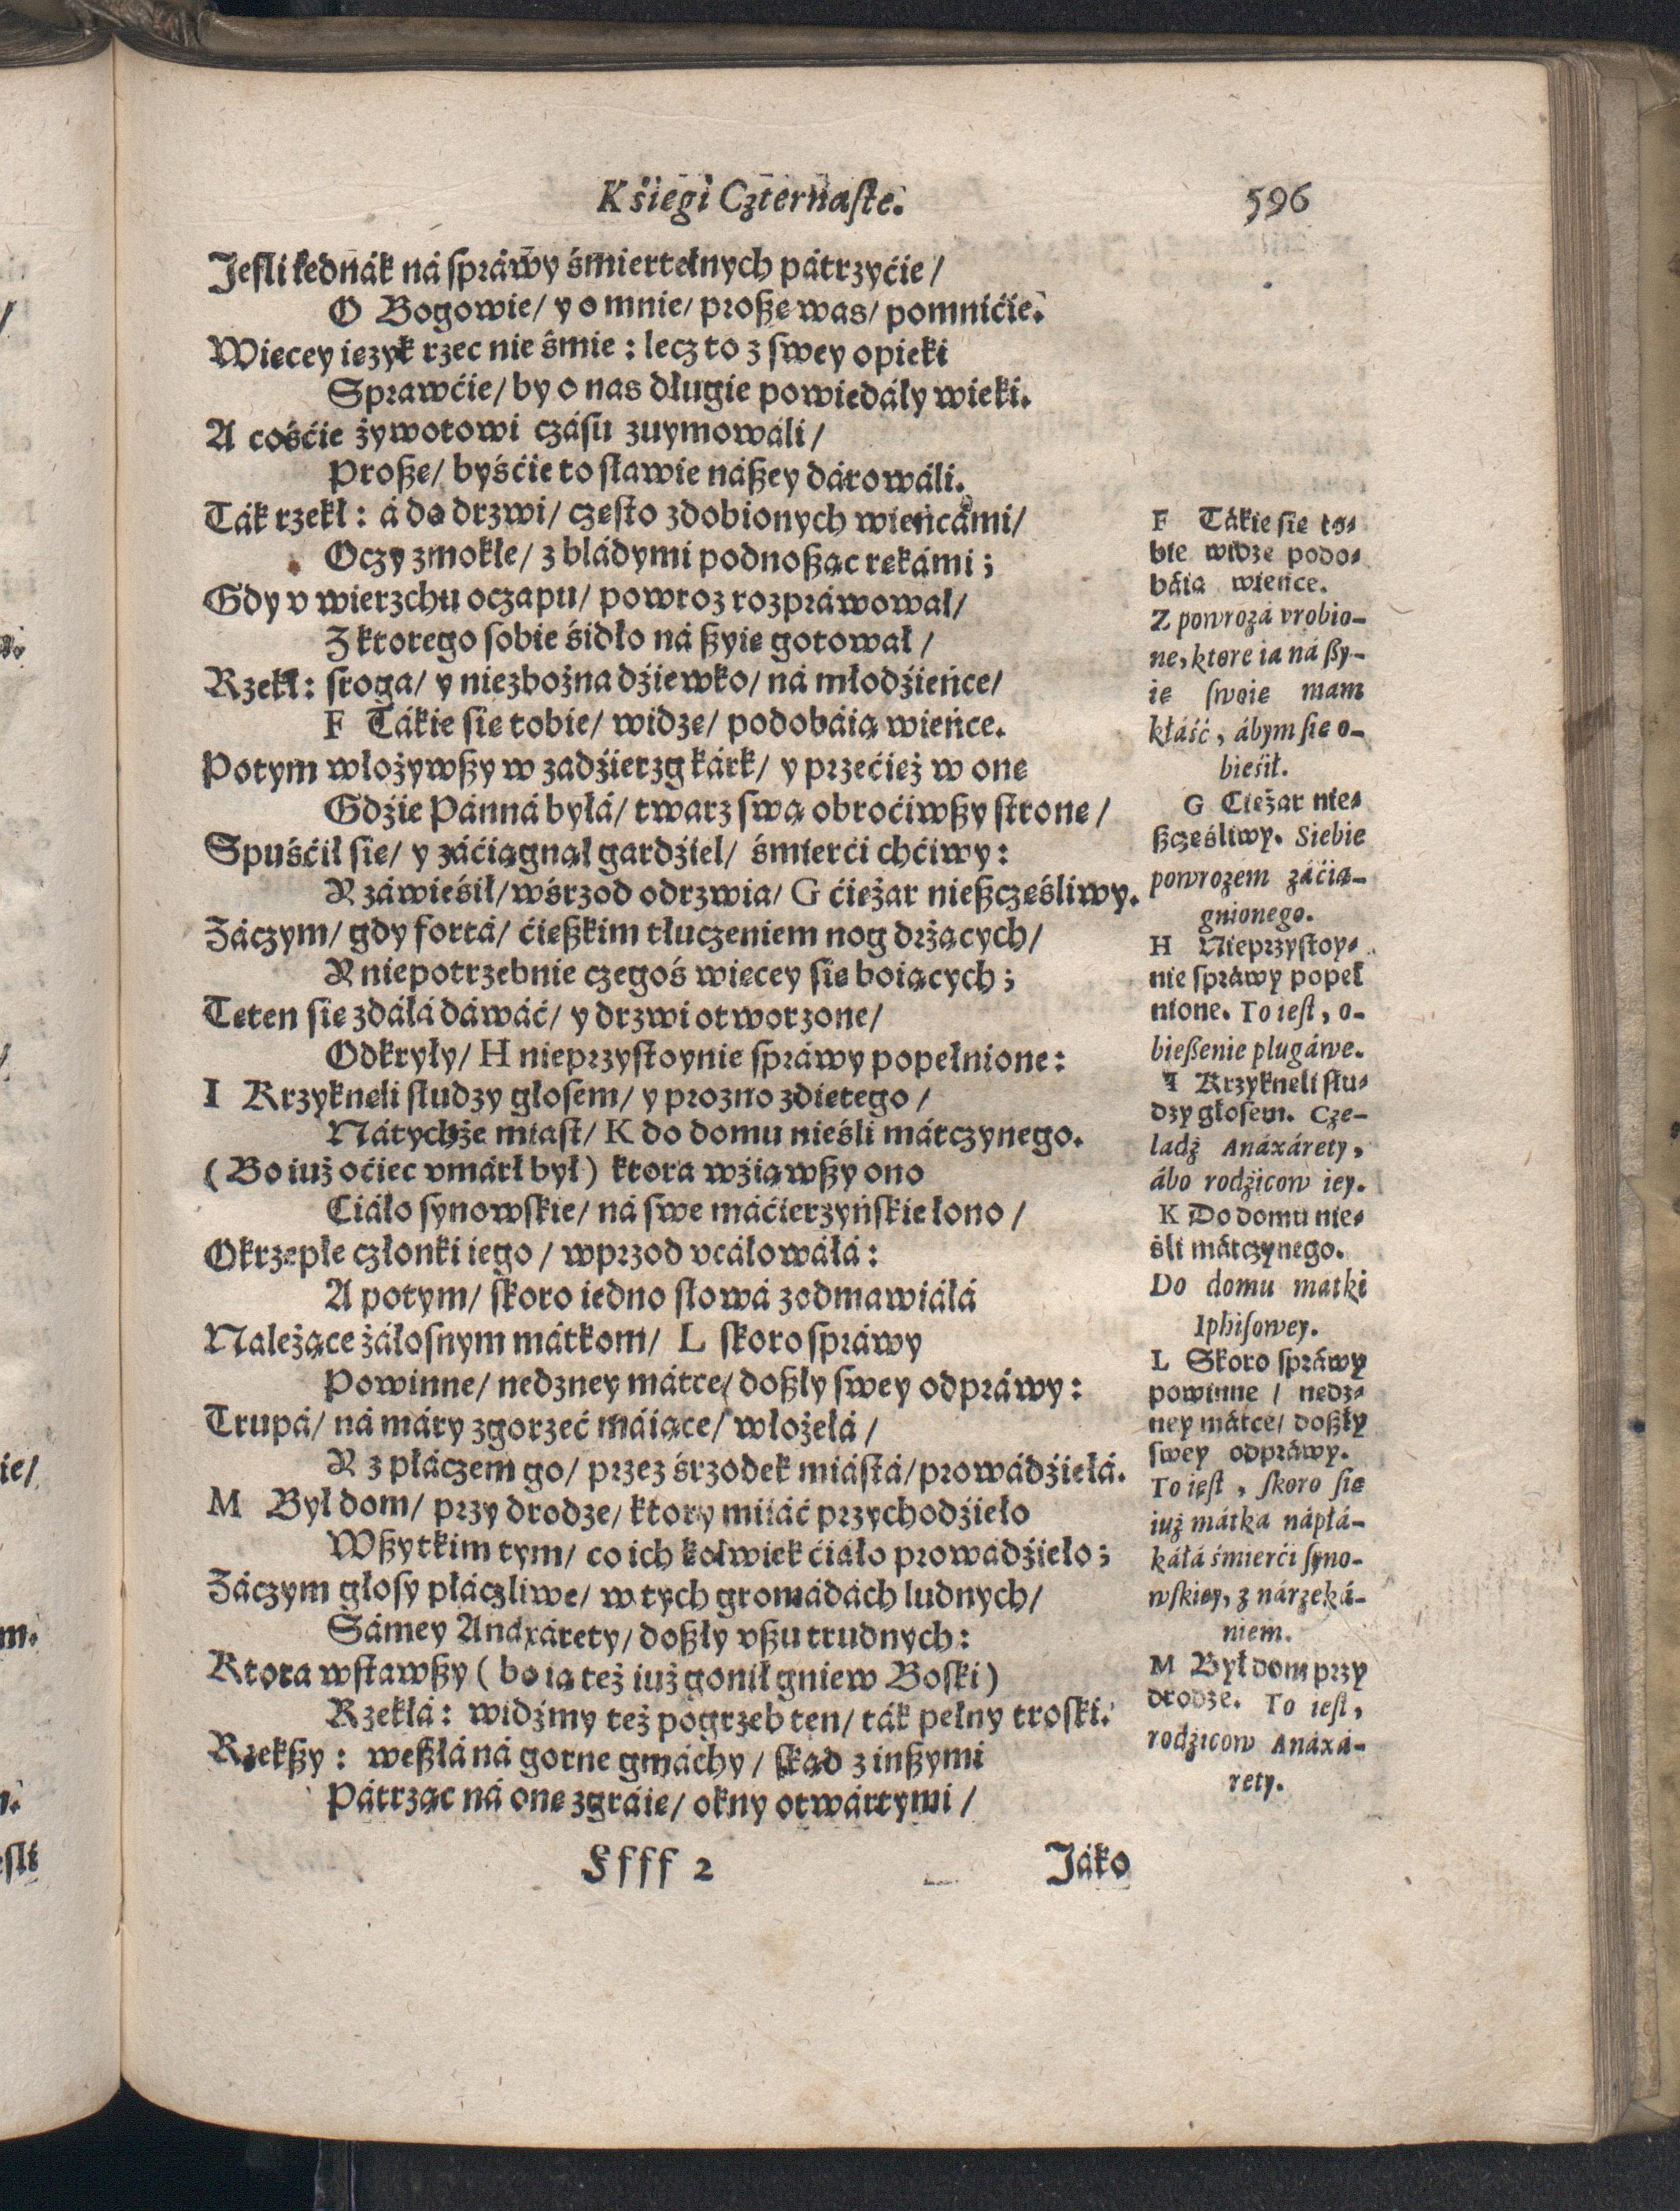 Kśięgi Cżternaſte.
596
Jeſli kednák ná ſpráwy śmiertelnych pátrzyćie /
O Bogowie / y o mnie / proßę was / pomnićie.
Więcey ięzyk rzec nie śmie : lecz to z ſwey opieki
Sprawćie / by o nas długie powiedáły wieki.
A cośćie żywotowi czáſu zuymowáli /
Proßę / byśćie to ſławie náßey dárowáli.
Ták rzekł : á do drzwi / cżęſto zdobionych wieńcámi /
Oczy zmokłe / z bládymi podnoßąc rękámi ;
Gdy v wierzchu oczapu / powroz rozpráwował /
Z ktorego ſobie śidło ná ßyię gotował /
Rzekł : ſroga / y niezbożna dźiewko / ná młodźieńce /
F Tákie ſię tobie / widzę / podobáią wieńce.
Potym włożywßy w zadźierzg kárk / y przećięż w onę
Gdźie Pánná byłá / twarz ſwą obroćiwßy ſtronę /
Spuśćił ſię / y záćiągnął gardźiel / śmierći chćiwy :
Y záwieśił / wśrzod odrzwia / G ćięžar nießcżęśliwy.
Záczym / gdy fortá / ćięßkim tłuczeniem nog drżących /
Y niepotrzebnie czegoś więcey ſię boiących ;
Teten ſię zdáłá dáwáć / y drzwi otworzone /
Odkryły / H nieprzyſtoynie ſpráwy popełnione :
I Krzyknęli ſłudzy głoſem / y prozno zdiętego /
Nátychże miaſt / K do domu nieśli mátczynego.
( Bo iuż oćiec vmárł był ) ktora wźiąwßy ono
Ciáło ſynowſkie / ná ſwe máćierzyńſkie łono /
Okrzepłe członki iego / wprzod vcáłowáłá :
A potym / ſkoro iedno ſłowá zodmawiáłá
Należące żáłoſnym mátkom / L ſkoro ſpráwy
Powinne / nędzney mátce / doßły ſwey odpráwy :
Trupá / ná máry zgorzeć máiące / włożełá /
Y z płáczem go / przez śrzodek miáſtá / prowádźiełá.
M Był dom / przy drodze / ktory miiáć przychodźieło
Wßytkim tym / co ich kolwiek ćiáło prowadźieło ;
Záczym głoſy płáczliwe / w tych gromádách ludnych /
Sámey Anáxárety / doßły vßu trudnych :
Ktora wſtawßy ( bo ią też iuż gonił gniew Boſki )
Rzekłá : widźmy też pogrzeb ten / ták pełny troſki.
Rzekßy : weßłá ná gorne gmáchy / ſkąd z inßymi
Pátrząc ná onę zgráię / okny otwártymi /
Ffff 2
Jáko
F Tákie ſię to-
bie widzę podo-
báią wieńce.
Z powrozá vrobio-
ne, ktore ia ná ßy-
ię ſwoię mam
kłáść, ábym ſię o-
bieśił.
G Ciężar nie-
ßczęśliwy. Siebie
powrozem záćią-
gnionego.
H Nieprzyſtoy-
nie ſpráwy popeł
nione. To ieſt, o-
bießenie plugáwe.
I Krzyknęli ſłu-
dzy głoſem. Cze-
ladź Anáxárety,
ábo rodźicow iey.
K Do domu nie-
śli mátczynego.
Do domu matki
Iphiſowey.
L Skoro ſpráwy
powinne / nędz-
ney mátce / doßły
ſwey odpráwy.
To ieſt, ſkoro ſię
iuż mátka nápłá-
káłá śmierći ſyno-
wſkiey, z nárzeká-
niem.
M Był dom przy
drodze. To ieſt,
rodźicow Anáxá-
rety.